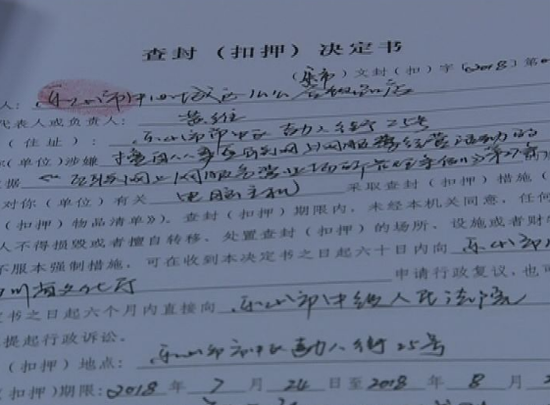 查封（扣押）决定书
（乐市）文封（扣）字〔2018〕第
人：乐山市市中区
代表人或负责人：
（住址）：乐山市市中区 人街25号
（单位）涉嫌 擅自从事互联网上网服务经营活动的
据《互联网上网服务营业场所管理条例》第27条
对你（单位）有关 电脑主机 采取查封（扣押）措施（
（扣押）物品清单》）。查封（扣押）期限内，未经本机关同意，任何
人不得损毁或者擅自转移、处置查封（扣押）的场所、设施或者财
不服本强制措施，可在收到本决定书之日起六十日内向 乐山市
川省文化厅 申请行政复议，也可
定书之日起六个月内直接向 乐山市中级人民法院
提起行政诉讼。
（扣押）地点：乐山市市中区 人街25号
（扣押）期限：2018 年 7 月 24 日至 2018 年 8 月 2